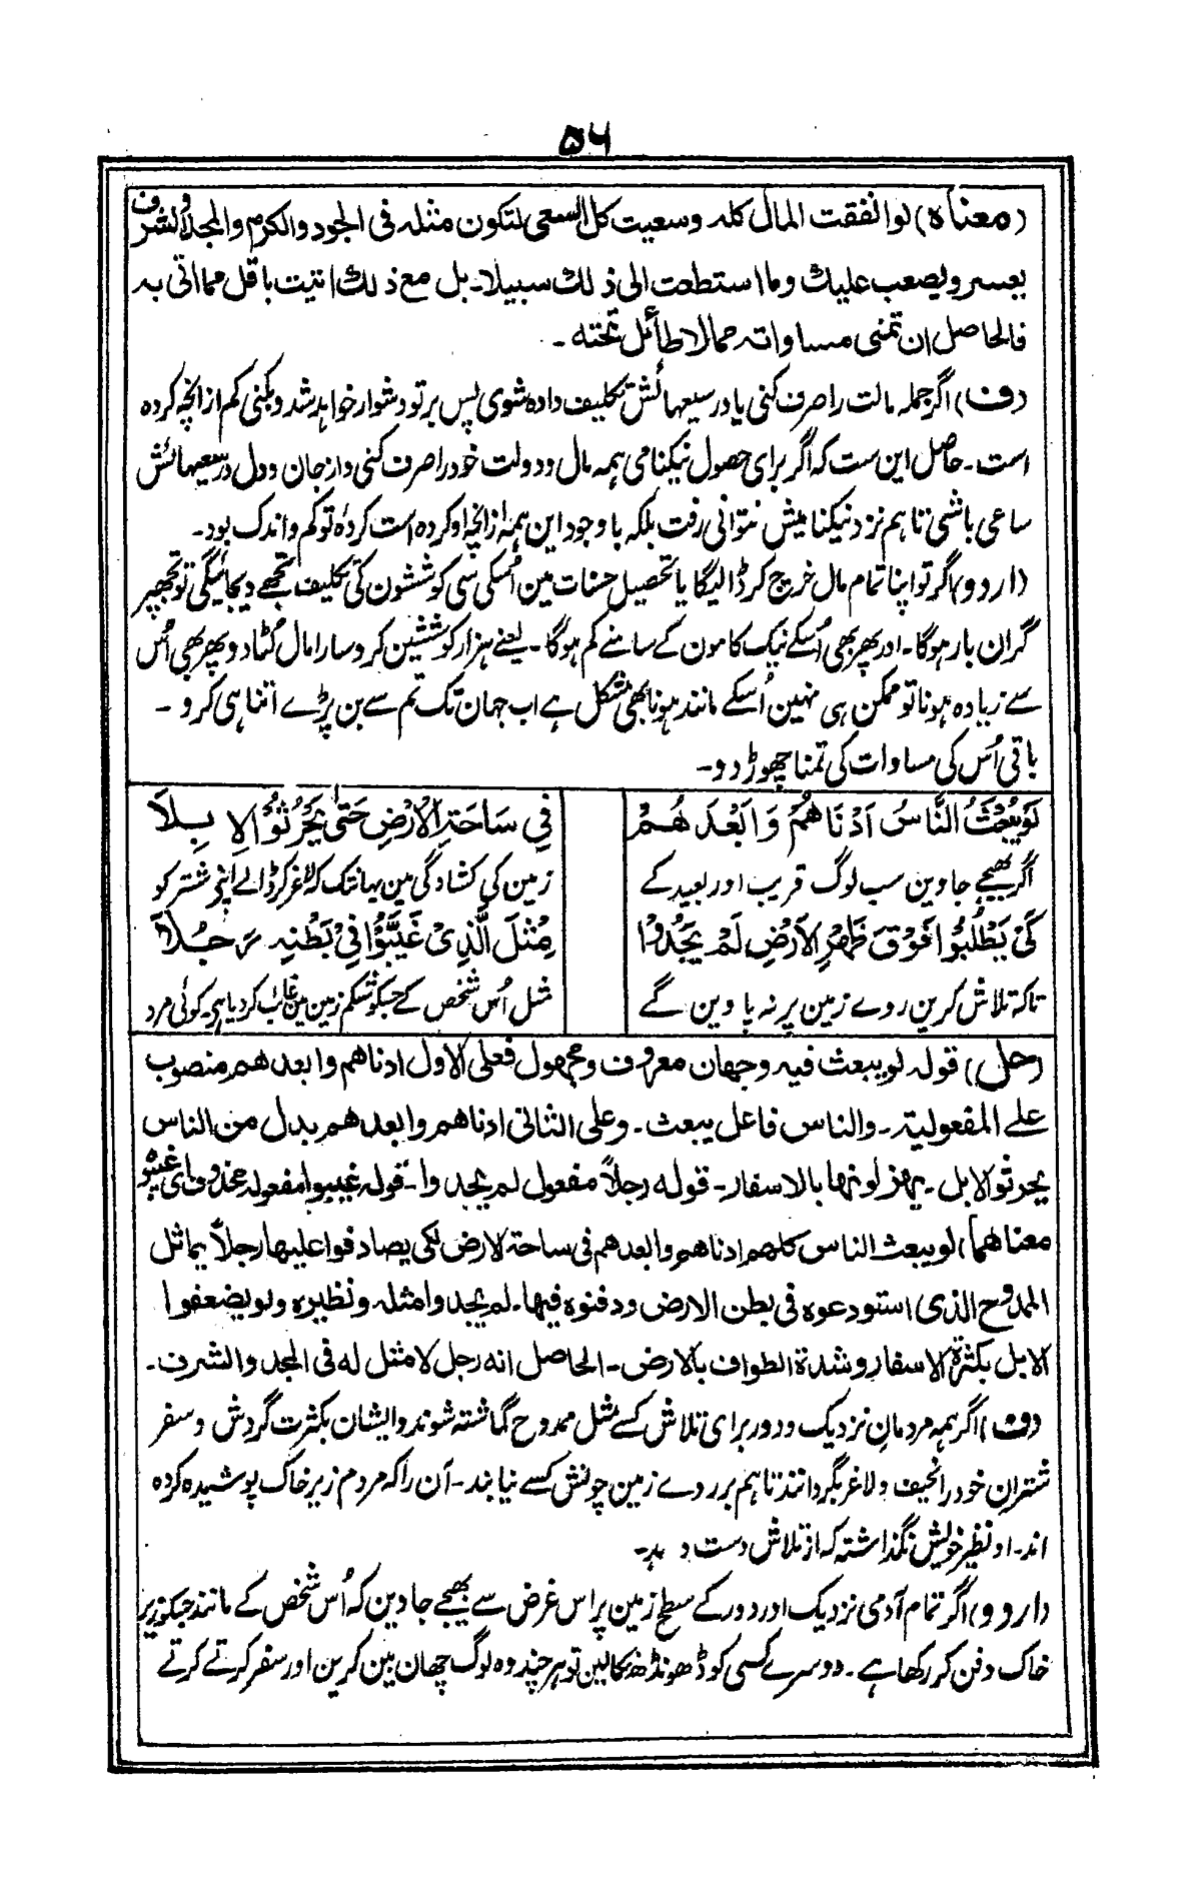 ۵۶
(معناہ) لو انفقت المال کلہ وسعیت کل السعی لتکون مثلہ فی الجود والکرم والمجد والشرف
یعسر ویصعب علیک وما استطعت الی ذلک سبیلا۔ بل مع ذلک اتیت باقل مما اتی بہ
فالحاصل ان تمنی مساواتہ مما لا طائل تحتہ ۔
(ف) اگر جملہ مالت را صرف کنی یا در سعیہائش تکلیف دادہ شوی پس بر تو دشوار خواہد شد و بکنی کم از انچہ کردہ
است۔ حاصل این ست کہ اگر برای حصول نیکنامی ہمہ مال و دولت خود را صرف کنی و از جان و دل در سعیہائش
ساعی باشی تاہم نزد نیکنامیش نتوانی رفت بلکہ با وجود این ہمہ از انچہ او کردہ است کردہٴ تو کم و اندک بود۔
(اردو) اگر تو اپنا تمام مال خرچ کر ڈالیگا یا تحصیل حسنات مین اُسکی سی کوششون کی تکلیف تجھے دیجائیگی تو تجھپر
گران بار ہوگا۔ اور پھر بھی اُسکے نیک کامون کے سامنے کم ہوگا۔ یعنے ہزار کوششین کرو سارا مال لُٹا دو پھر بھی اُس
سے زیادہ ہونا تو ممکن ہی نہین اُسکے مانند ہونا بھی مشکل ہے اب جہان تک تم سے بن پڑے اتنا ہی کرو ۔
باقی اُس کی مساوات کی تمنا چھوڑ دو۔
لَوْ یُبْعَثُ النَّاسُ اَدْنَاھُمْ وَاَبْعَدُھُمْ فِیْ سَاحَۃِ الْاَرْضِ حَتّٰی یَحْرُثُوْا الْاِبِلَا
اگر بھیجے جاوین سب لوگ قریب اور بعید کے زمین کی کشادگی مین یہانتک کہ لاغر کر ڈالے اپنے شتر کو
کَیْ یَطْلُبُوْا فَوْقَ ظَھْرِ الْاَرْضِ لَمْ یَجِدُوْا مِثْلَ الَّذِیْ غَیَّبُوْا فِیْ بَطْنِہٖ رَجُلَا
تاکہ تلاش کرین روے زمین پر نہ پاوین گے مثل اُس شخص کے جسکو شکم زمین مین غائب کر دیا ہی۔ کوئی مرد
(حل) قولہ لو یبعث فیہ وجھان معروف ومجھول فعلی الاول ادناھم وابعدھم منصوب
علے المفعولیۃ۔ والناس فاعل یبعث۔ وعلی الثانی ادناھم وابعدھم بدل من الناس
یحرثو الابل۔ یھزلونھا بالاسفار۔ قولہ رجلاً مفعول لم یجدوا۔ قولہ غیبوا مفعولہ محذوف ای غیبوہ
معناھما) لو یبعث الناس کلھم ادناھم وابعدھم فی ساحۃ الارض لکی یصادفوا علیھا رجلاً یماثل
الممدوح الذی استودعوہ فی بطن الارض ودفنوہ فیھا۔ لم یجدوا مثلہ ونظیرہ ولو یضعفوا
الابل بکثرۃ الاسفار وشدۃ الطواف بالارض۔ الحاصل انہ رجل لا مثل لہ فی المجد والشرف۔
(ف) اگر ہمہ مردمان نزدیک و دور برای تلاش کسے مثل ممدوح گماشتہ شوند و ایشان بکثرت گردش و سفر
شتران خود را نحیف و لاغر بگردانند تاہم بر روے زمین چونش کسے نیابند۔ آن را کہ مردم زیر خاک پوشیدہ کردہ
اند۔ او نظیر خویش نگذاشتہ کہ از تلاش دست دہد۔
(اردو) اگر تمام آدمی نزدیک اور دور کے سطح زمین پر اس غرض سے بھیجے جاوین کہ اُس شخص کے مانند جسکو زیر
خاک دفن کر رکھا ہے۔ دوسرے کسی کو ڈھونڈھ نکالین تو ہر چند وہ لوگ چھان بین کرین اور سفر کرتے کرتے